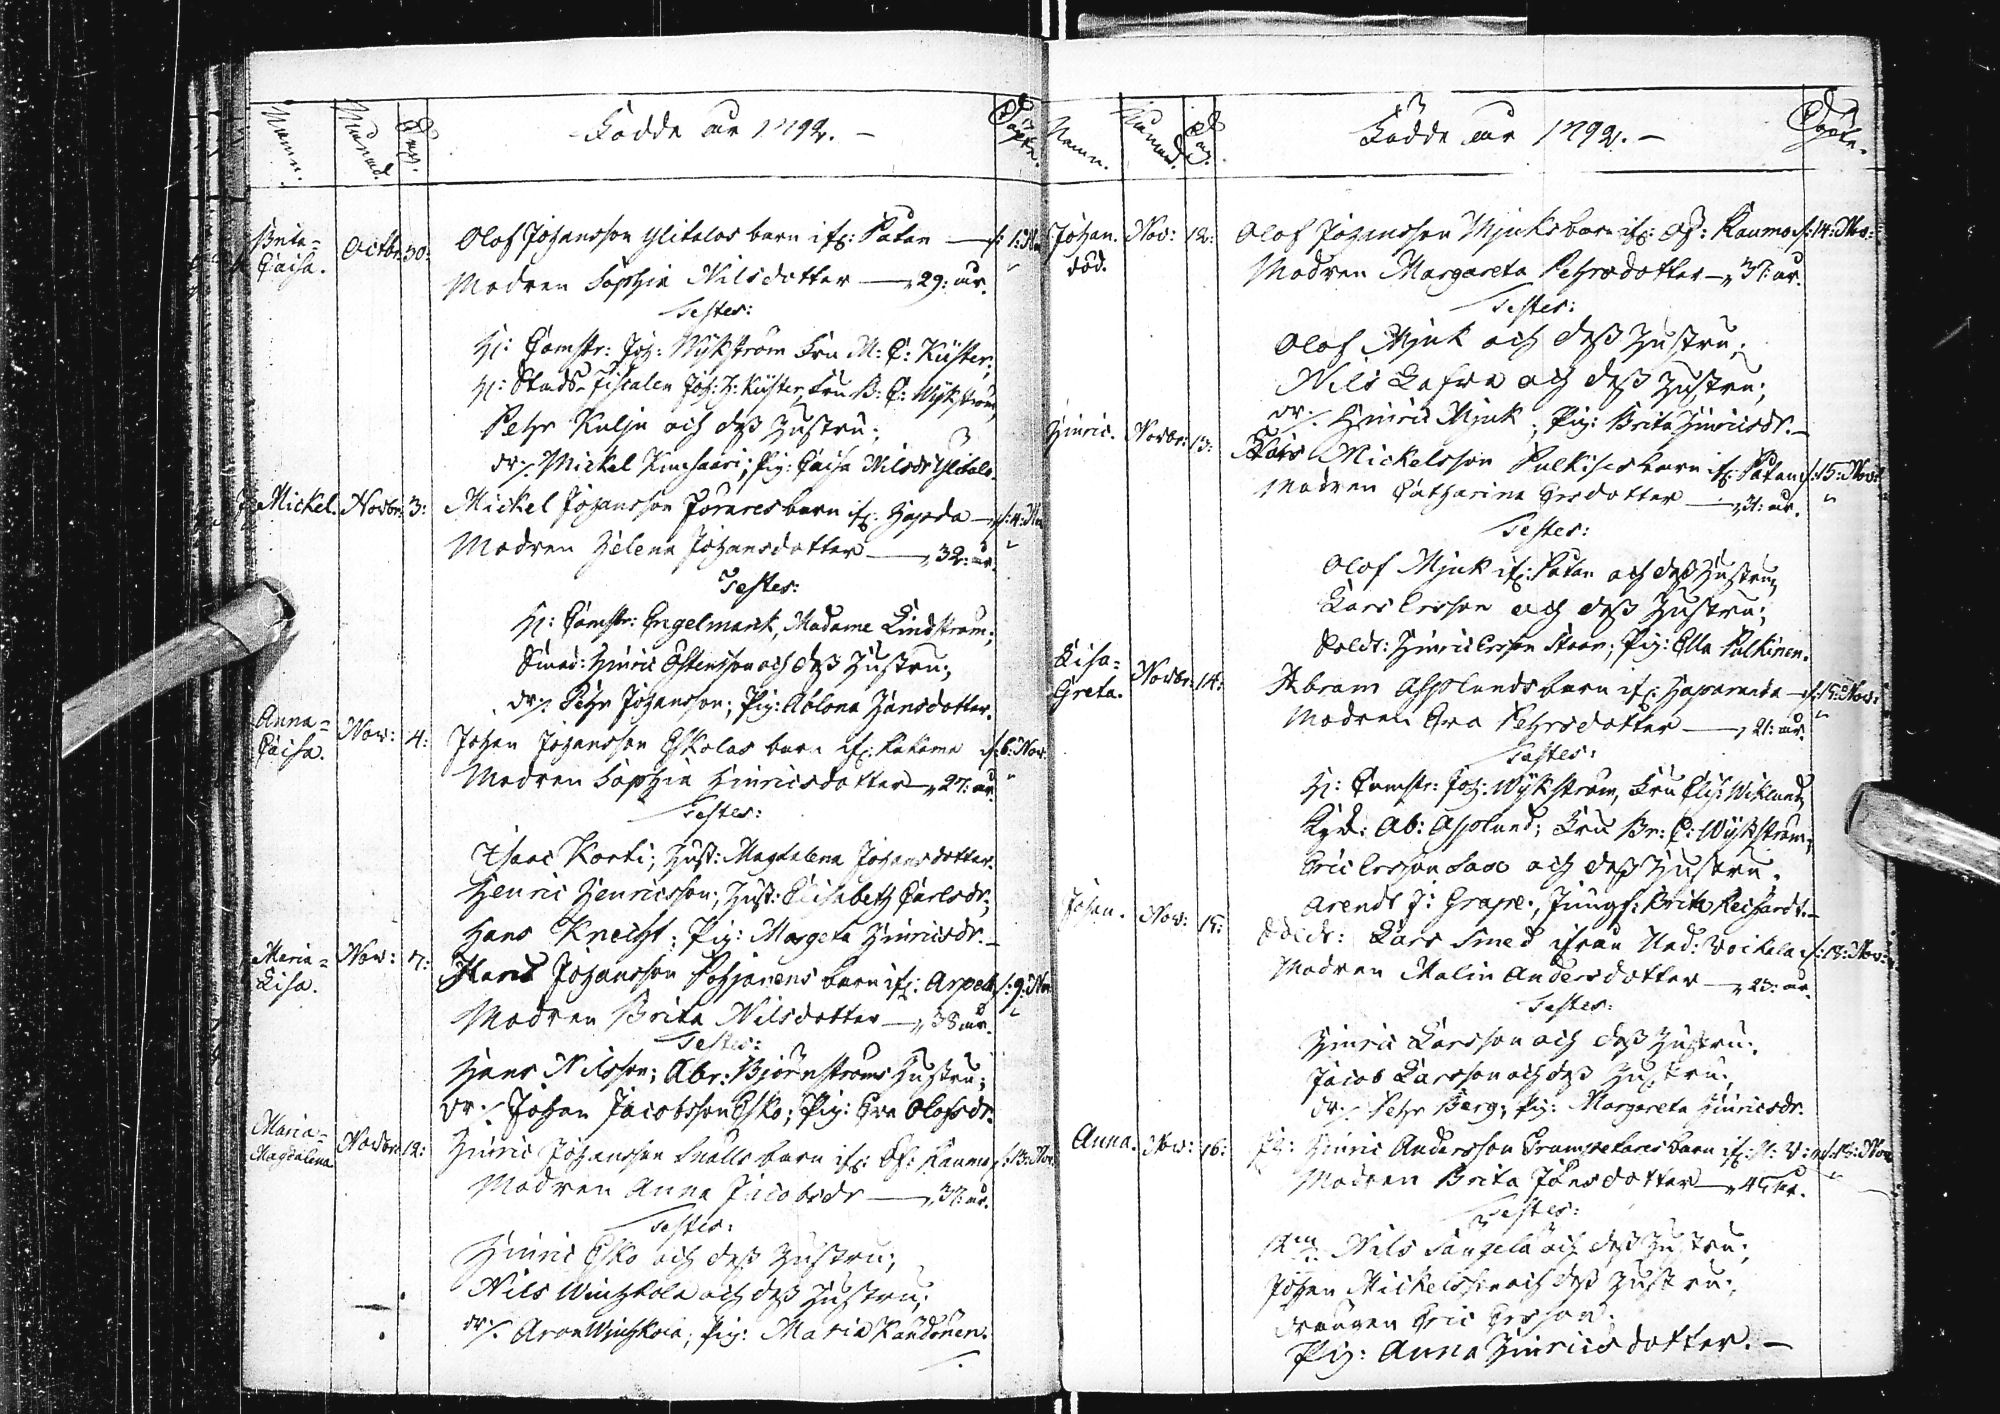 Namn. Månad. Dag. Födde år 1792. — Döpte.
Brita= Octbr: 30: Olof Johansson Ylitalos barn ifr: Patan — d: 1: Nov
Caisa. Modren Sophia Nilsdotter — 29: år.
Testes:
Hr: Comstr: Joh: Wykström Fru M: C: Küster;
Hr: Stads-Fiscalen Joh: H: Küster, Fru B: C: Wykström;
Pehr Kulju och dess Hustru;
dr: Mickel Kimsaari; Pig: Caisa Nilsdr Ylitalo.
Mickel. Novbr: 3: Mickel Johansson Joraresbarn ifr: Haparda — d: 4: Nov
Modren Helena Johansdotter — 32: år.
Testes:
Hr: Comstr: Engelmark, Madame Lindström;
Smed: Hinric Östensson och dess Hustru;
dr: Pehr Johansson; Pig: Abelona Hansdotter.
Anna= Nov: 4: Johan Johansson Eskolas barn ifr: Kakama d: 6: Nov
Caisa. Modren Sophia Hinricsdotter — 27: år.
Testes:
Isaac Korti; Hust: Magdalena Johansdotter.
Henric Henricsson; Hust: Elisabeth Carlsdr;
Hans Knecht; Pig: Margeta Hinricsdr. —
Maria= Nov: 7: Hans Johansson Pohjanens barn ifr: Arpela d: 9: Nov
Lisa. Modren Brita Nilsdotter — 38 år.
Testes:
Hans Nilsson; Abr: Björnströms Hustru;
dr: Johan Jacobsson Esko; Pig: Eva Olofsdr.
Maria= Novbr: 12: Hinric Johansson Snälls barn ifr: Raumo d: 13: Nov
Magdalena Modren Anna Jacobsdr — 37: år.
Testes:
Hinric Esko och dess Hustru;
Nils och dess Hustru;
dr: Aron; Pig: Maria Kandonen.
Namn. Månad. Dag. Födde år 1792. — Döpte.
Johan. Nov: 12: Olof Johansson Mjuks barn ifr: Raumo d: 14: Nov:
död. Modren Margareta Pehrsdotter — 37: år.
Testes:
Olof Mjuk och dess Hustru;
Nils Lafwa och dess Hustru;
dr: Hinric Mjuk; Pig: Brita Hinricsdr. —
Hinric. Novbr: 13: Lars Mickelsson Pulkises barn ifr: Patan d: 15: Nov:
Modren Catharina Ersdotter — 31: år.
Testes:
Olof Mjuk ifr: Patan och dess Hustru;
Lars Ersson och dess Hustru;
Soldt: Hinric Ersson; Pig: Ella Pulkinen.
Lisa= Novbr: 14: Abram Asplunds barn ifr: Haparanda — d: 15: Nov:
Greta. Modren Eva Pehrsdotter — 21: år.
Testes:
Hr: Comstr: Joh: Wykström, Fru Elis: Wiklund;
Ryd: Ab: Asplund; Fru Br: C: Wykström;
Eric Ersson Saxe och dess Hustru.
Arendt J: Grape; Jungf: Brita Reichardt. —
Johan. Nov: 15: Lars Smed ifrån Ned: Woikala d: 18: Nov:
Modren Malin Andersdotter — 23: år.
Testes:
Hinric Larsson och dess Hustru;
Jacob Larsson och dess Hustru;
dr: Pehr Berg; Pig: Margareta Hinricsdr.
Anna. Nov: 16: Hinric Andersson Trumpetares barn ifr: N: V: d: 18: Nov
Modren Brita Jönsdotter — 45 år.
Testes:
Nils och dess Hustru;
Johan Mickelsson och dess Hustru;
drängen Eric Ersson.
Pig: Anna Hinricsdotter. —